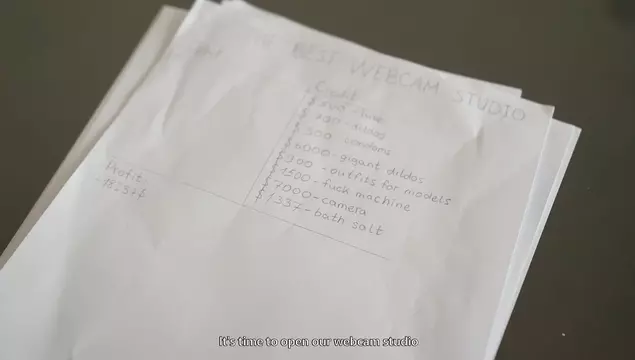 BEST WEBCAM STUDIO
Credit
$ 500 - lube
$ 200 - dildos
$ 500 condoms
$ 6000 - gigant dildos
$ 900 - outfits for models
$ 1500 - fuck machine
$ 7000 - camera
$ 1337 - bath salt
Profit:
It's time to open our webcam studio